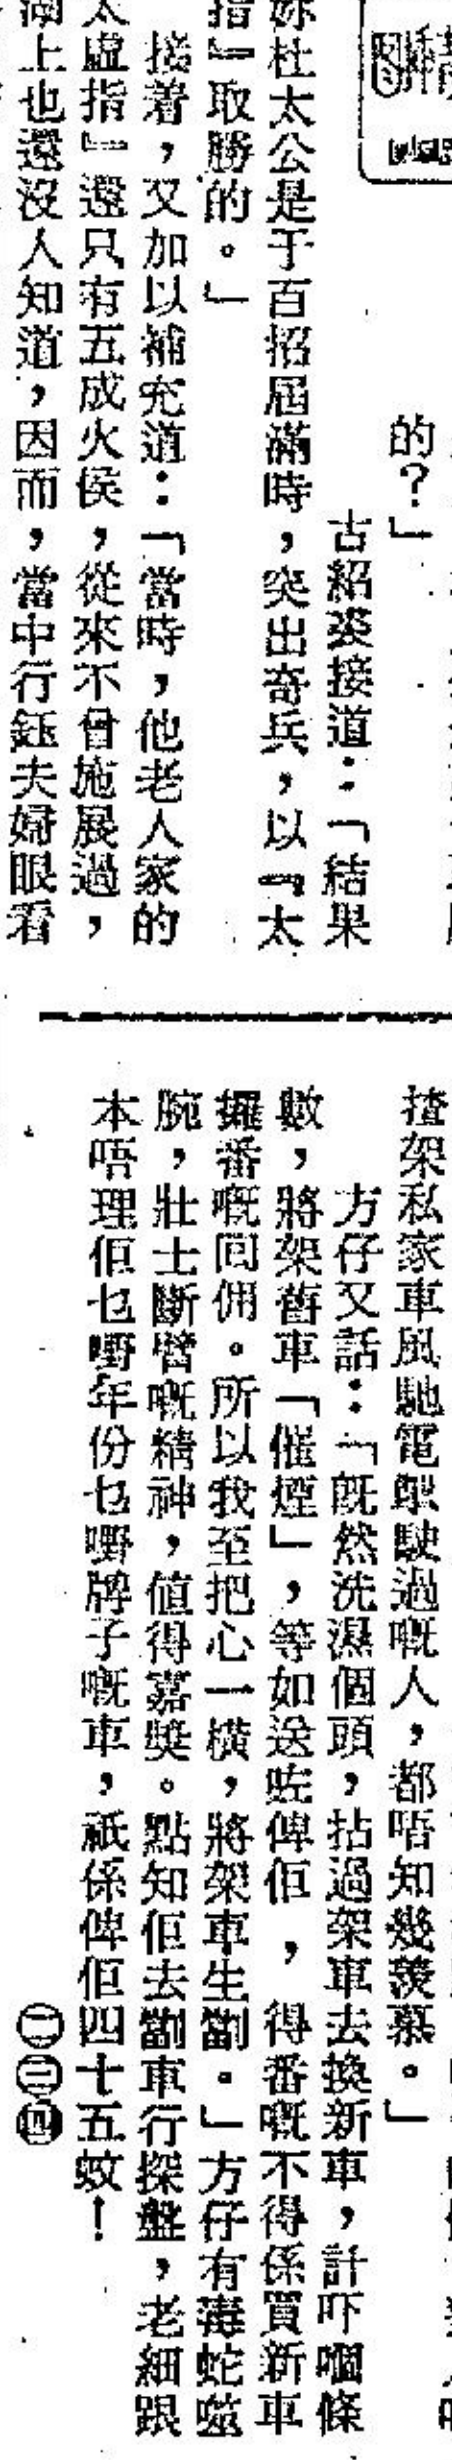 的？」
古紹裘接道：「結果
妳杜太公是于百招屆滿時，突出奇兵，以『太
指』取勝的。」
接着，又加以補充道：「當時，他老人家的
太虛指』還只有五成火侯，從來不曾施展過，
湖上也還沒人知道，因而，當中行鈺夫婦眼看
揸架私家車風馳電駛過嘅人，都唔知幾羨慕。」
方仔又話：「既然洗濕個頭，拈過架車去換新車，計吓嗰條
數，將架舊車「催煙」，等如送咗俾佢，得番嘅不得係買新車
攞番嘅囘佣。所以我至把心一橫，將架車生劏。」方仔有毒蛇噬
腕，壯士斷臂嘅精神，值得嘉奬。點知佢去劏車行探盤，老細跟
本唔理佢乜嘢年份乜嘢牌子嘅車，祇係俾佢四十五蚊！
㊁㊂㊃